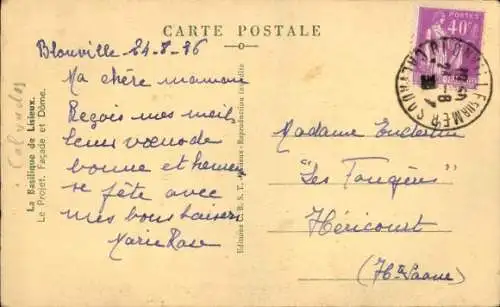 CARTE POSTALE
Blonville 24-8-36
Ma chère maman
Reçois mes meil
leurs vœux de
bonne et heureu
se fête avec
mes bons baisers
Marie Rose
Calvados
La Basilique de Lisieux.
Le Projet. Façade et Dôme.
Reproduction interdite
POSTES
40c
Madame Enderlin
"Les Fougères"
Héricourt
(Hte Saone)